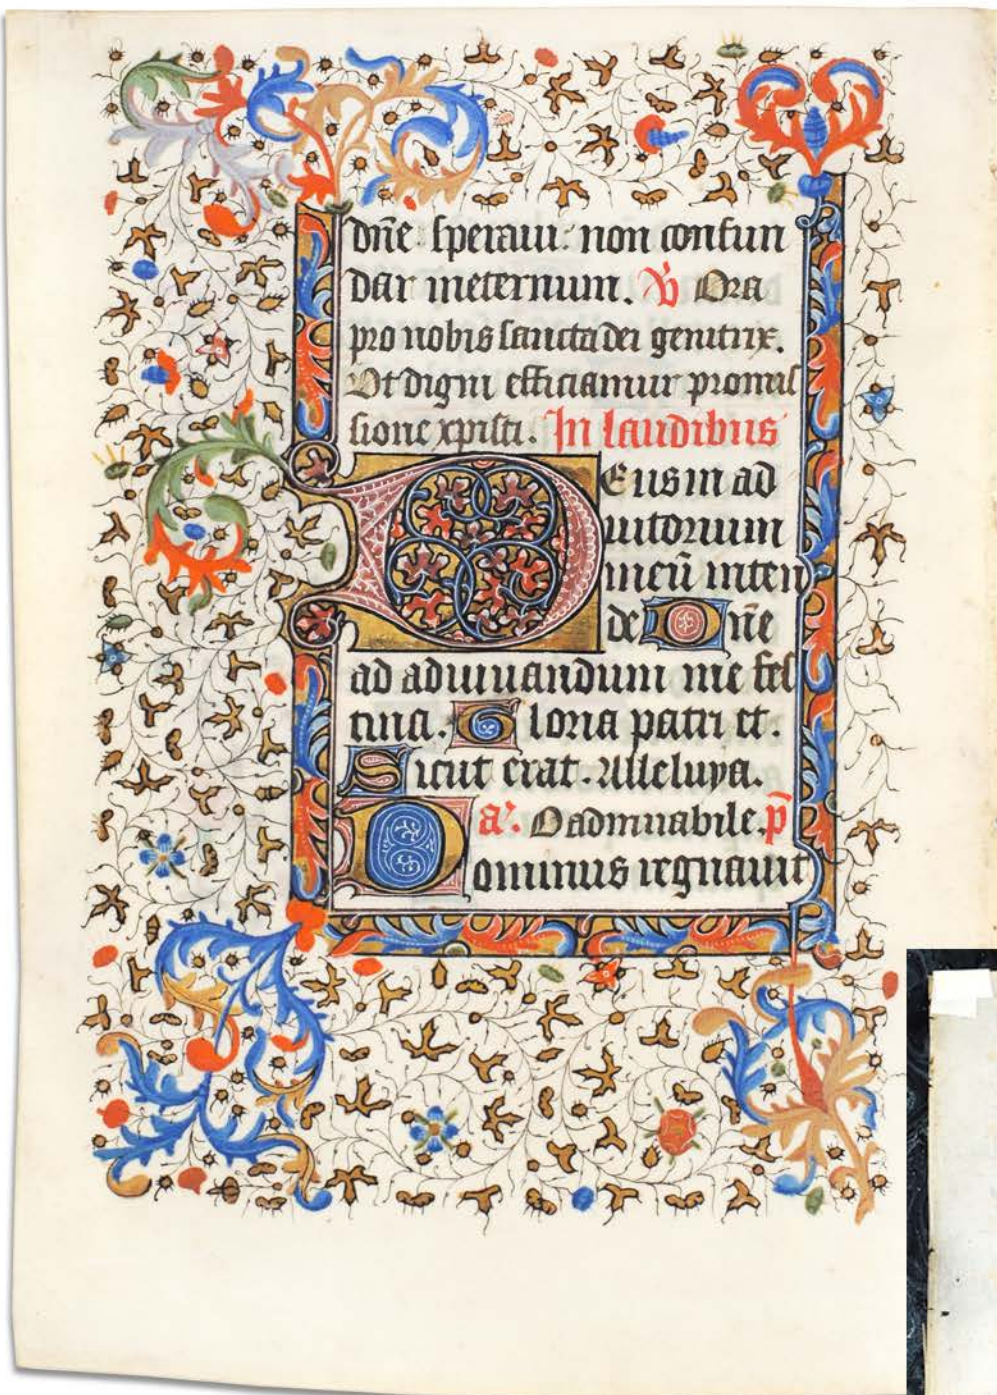 dñe speraui: non confun
dar ineternum. ℣ Ora
pro nobis sancta dei genitrix.
Vt digni efficiamur promis
sione xpisti. In laudibus
Deus in ad
iutorium
meū inten
de Dñe
ad adiuuandum me fes
tina. Gloria patri et.
Sicut erat. Alleluya.
aᵃ. O admirabile. p̄
Dominus regnauit